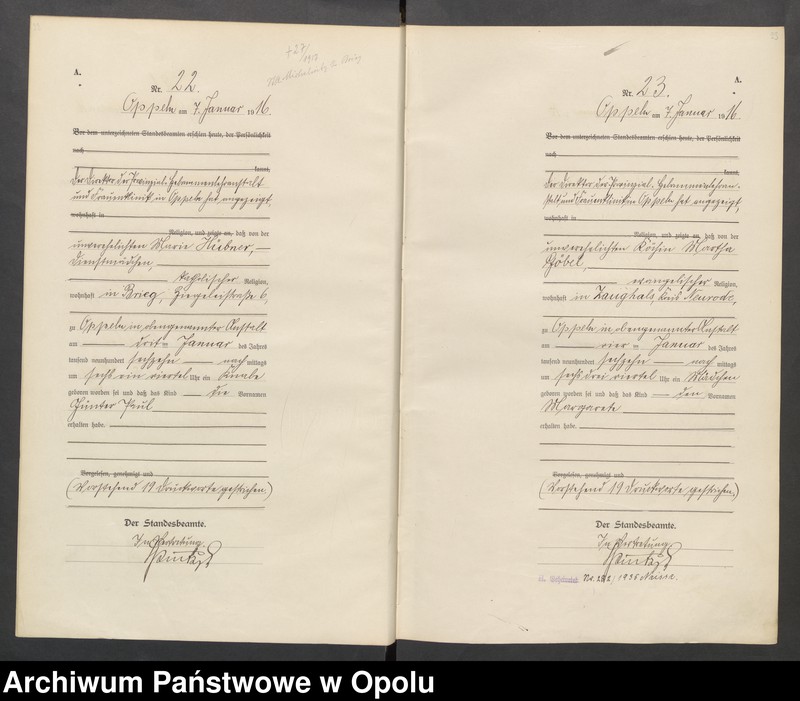 A.
Nr. 22.
Oppeln am 7. Januar 1916.
Vor dem unterzeichneten Standesbeamten erschien heute, der Persönlichkeit
nach
kannt,
Der Direktor der Provinzial-Hebammenlehranstalt
und Frauenklinik in Oppeln hat angezeigt,
wohnhaft in
Religion, und zeigte an, daß von der
unverehelichten Marie Hübner,
Dienstmädchen,
katholischer Religion,
wohnhaft in Brieg, Ziegeleistraße 6,
zu Oppeln in obengenannter Anstalt
am drei ten Januar des Jahres
tausend neunhundert sechzehn nach mittags
um sechs ein viertel Uhr ein Knabe
geboren worden sei und daß das Kind die Vornamen
Günter Paul
erhalten habe.
Vorgelesen, genehmigt und
(Vorstehend 19 Druckworte gestrichen.)
Der Standesbeamte.
In Vertretung.
A.
Nr. 23.
Oppeln am 7. Januar 1916.
Vor dem unterzeichneten Standesbeamten erschien heute, der Persönlichkeit
nach
kannt,
Der Direktor der Provinzial-Hebammenlehran-
stalt und Frauenklinik in Oppeln hat angezeigt,
wohnhaft in
Religion, und zeigte an, daß von der
unverehelichten Köchin Martha
Göbel,
evangelischer Religion,
wohnhaft in Zaughals, Kreis Neurode,
zu Oppeln in obengenannter Anstalt
am vier ten Januar des Jahres
tausend neunhundert sechzehn nach mittags
um sechs drei viertel Uhr ein Mädchen
geboren worden sei und daß das Kind den Vornamen
Margarete
erhalten habe.
Vorgelesen, genehmigt und
(Vorstehend 19 Druckworte gestrichen.)
Der Standesbeamte.
In Vertretung.
Archiwum Państwowe w Opolu